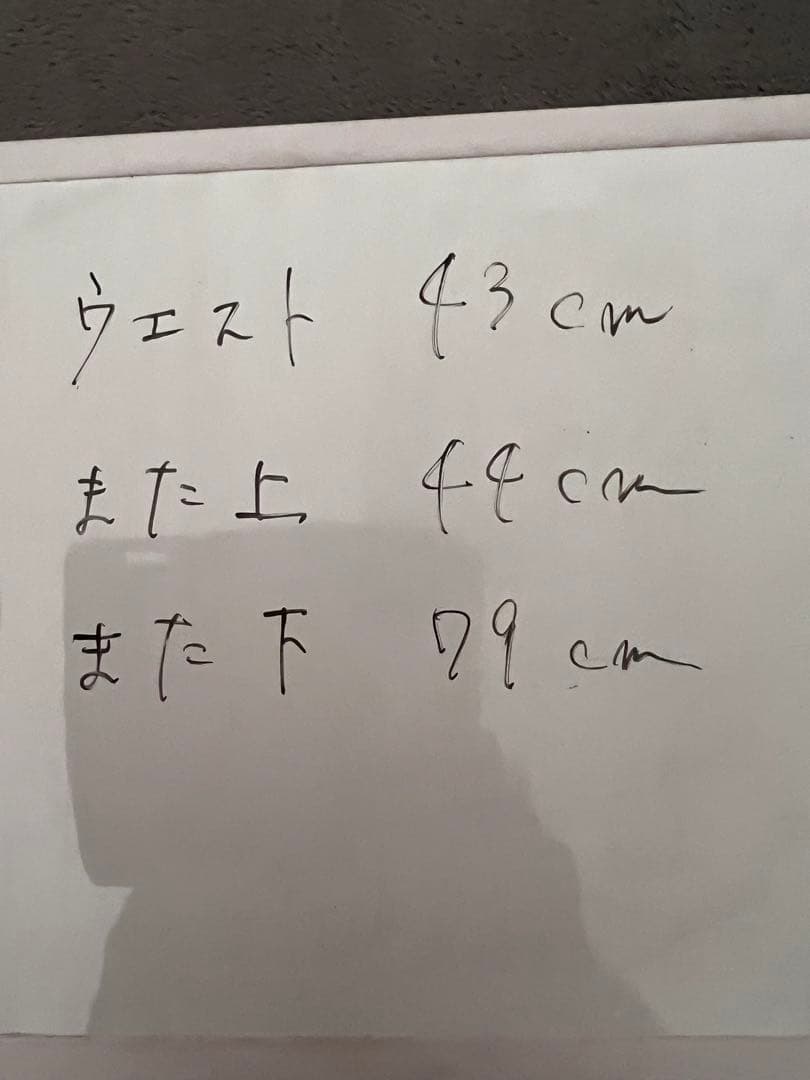 ウエスト 43cm
また上 44cm
また下 79cm